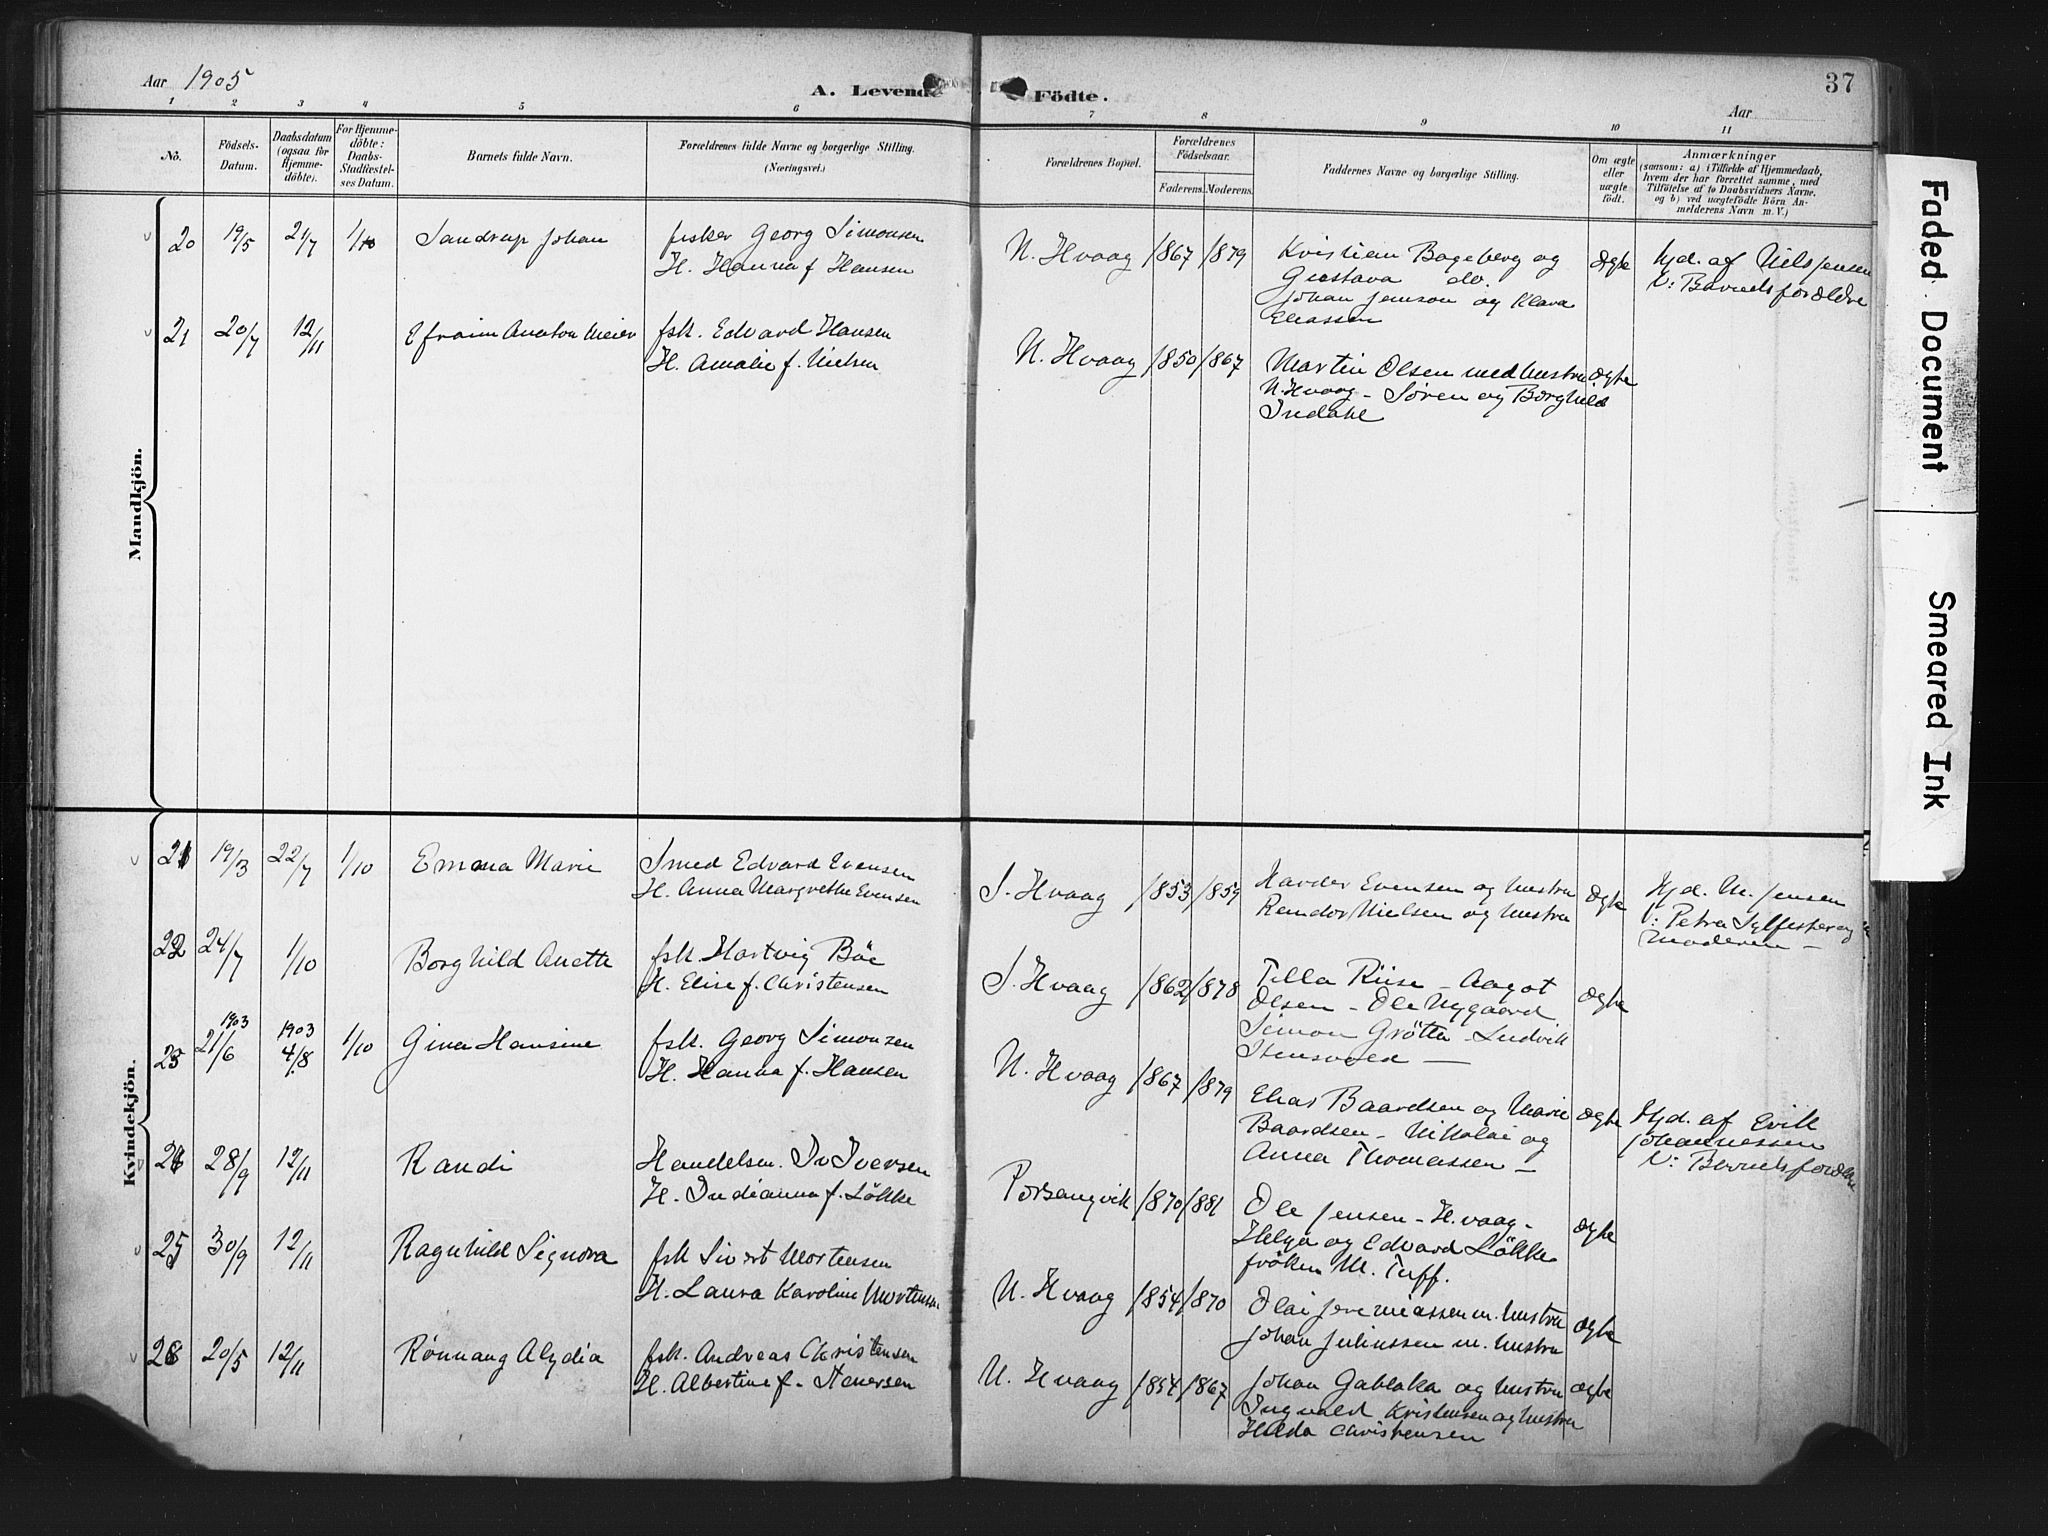 Aar 1905
A. Levende
Födte.
37
Aar
1 2 3 4 5 6 7 8 9 10 11
No.
Födsels-
Datum.
Daabsdatum
(ogsaa for
Hjemme-
döbte).
For Hjemme-
döbte:
Daabs-
Stadfæstel-
ses Datum.
Barnets fulde Navn.
Forældrenes fulde Navne og borgerlige Stilling.
(Næringsvei.)
Forældrenes Bopæl.
Forældrenes
Födselsaar.
Faderens. Moderens.
Faddernes Navne og borgerlige Stilling.
Om ægte
eller
uægte
født.
Anmærkninger
(saasom: a) i Tilfælde af Hjemmedaab,
hvem der har forrettet samme, med
Tilföielse af to Daabsvidners Navne.
og b) ved uægtefödte Börn An-
melderens Navn m. V.)
Mandkjön.
20 19/5 21/7 1/10 Sandrup Johan
fisker Georg Simonsen
H. Hanna f. Hansen
N. Hvaag 1867 1879
Kristian Bogeberg og
Gustava do.
Johan Jenson og Klara
Eliassen
Ægte
Hjd. af Nils Jensen
V: Barnets forældre
21 20/7 12/11 Efraim Anaton Meier
fsk. Edvard Hansen
H. Amalie f. Nielsen
N. Hvaag 1850 1867
Martin Olsen med hustru
N. Hvaag - Søren og Borghild
Indahl
Ægte
Kvindekjön.
21 19/3 22/7 1/10 Emma Marie
Smed Edvard Evensen
H. Anna Margrethe Evensen
S. Hvaag 1853 1859
Harder Evensen og hustru
Rendor Nielsen og hustru
Ægte
Hjd. M. Jensen
V: Petra Sylfester og
Moderen -
22 24/7 1/10 Borghild Anette
fsk. Hartvig Böe
H. Elise f. Christensen
S. Hvaag 1862 1878
Tilla Riise - Aagot
Olsen - Ole Nygaard
Simon Grötta - Ludvik
Stensvold -
Ægte
23 1903 21/6 1903 4/8 1/10 Gina Hansine
fsk. Georg Simonsen
H. Hanna f. Hansen
N. Hvaag 1867 1879
Elias Baardsen og Marie
Baardsen - Nikolai og
Anna Thomassen -
Ægte
Hjd. af Erik
Johannessen
V: Barnets forældre
24 28/9 12/11 Randi
Handelsm. Iv Iversen
H. Indianna f. Lökke
Porsangvik 1870 1881
Ole Jensen - H.vaag -
Helga og Edvard Lökke
fröken M. Tuff.
Ægte
25 30/9 12/11 Ragnhild Signora
fsk Sivert Mortensen
H. Laura Karoline Mortensen
N. Hvaag 1854 1870
Olai Jeremiassen m. hustru
Johan Juliussen m. hustru
Ægte
26 20/5 12/11 Rönnaug Alydia
fsk. Andreas Christensen
H. Albertine f. Stenersen
N. Hvaag 1854 1867
Johan Gablaka og hustru
Ingvald Kristensen og hustru
Hilda Christensen
Ægte
Faded Document
Smeared Ink